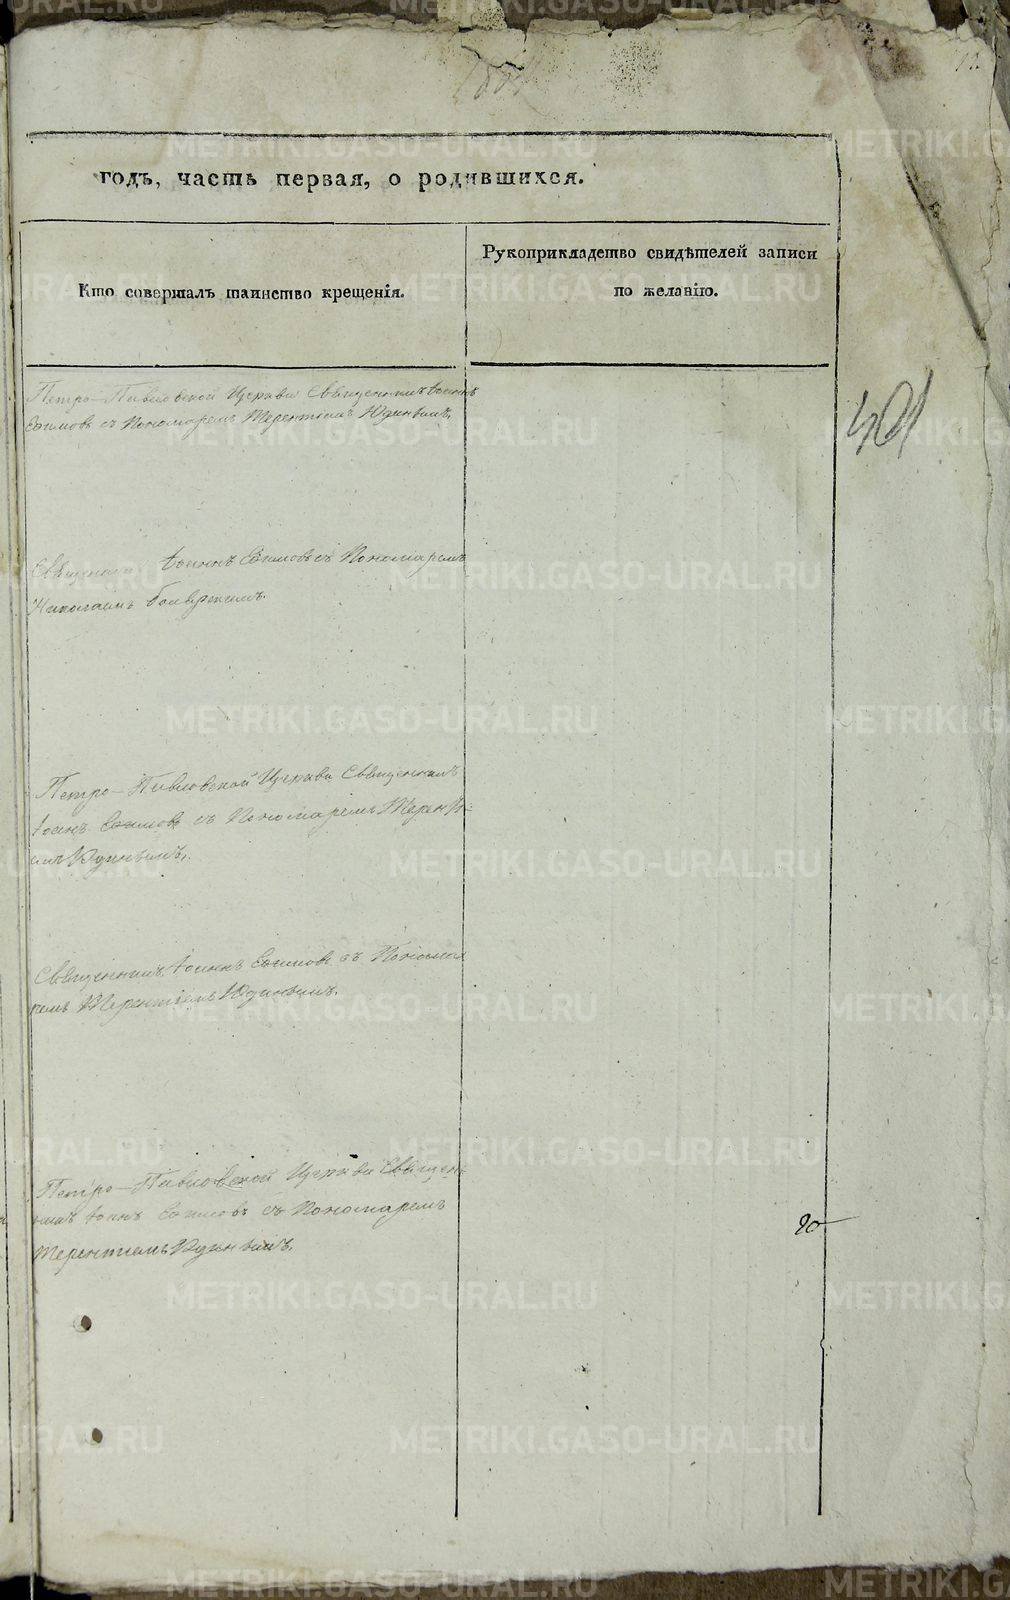 годъ, часть первая, о родившихся.
Кто совершалъ таинство крещенія.
Рукоприкладство свидѣтелей записи
по желанію.
Петро-Павловской Церкви Священникъ Іоаннъ
Ефимовъ съ Пономаремъ Терентіемъ Юдинымъ.
401
Священникъ Іоаннъ Ефимовъ съ Пономаремъ
Николаемъ
Петро-Павловской Церкви Священникъ
Іоаннъ Ефимовъ съ Пономаремъ Терентi=
емъ Юдинымъ.
Священникъ Іоаннъ Ефимовъ съ Понома
ремъ Терентіемъ Юдинымъ.
Петро-Павловской Церкви Священ
никъ Іоаннъ Ефимовъ съ Пономаремъ
Терентіемъ Юдинымъ.
METRIKI.GASO-URAL.RU